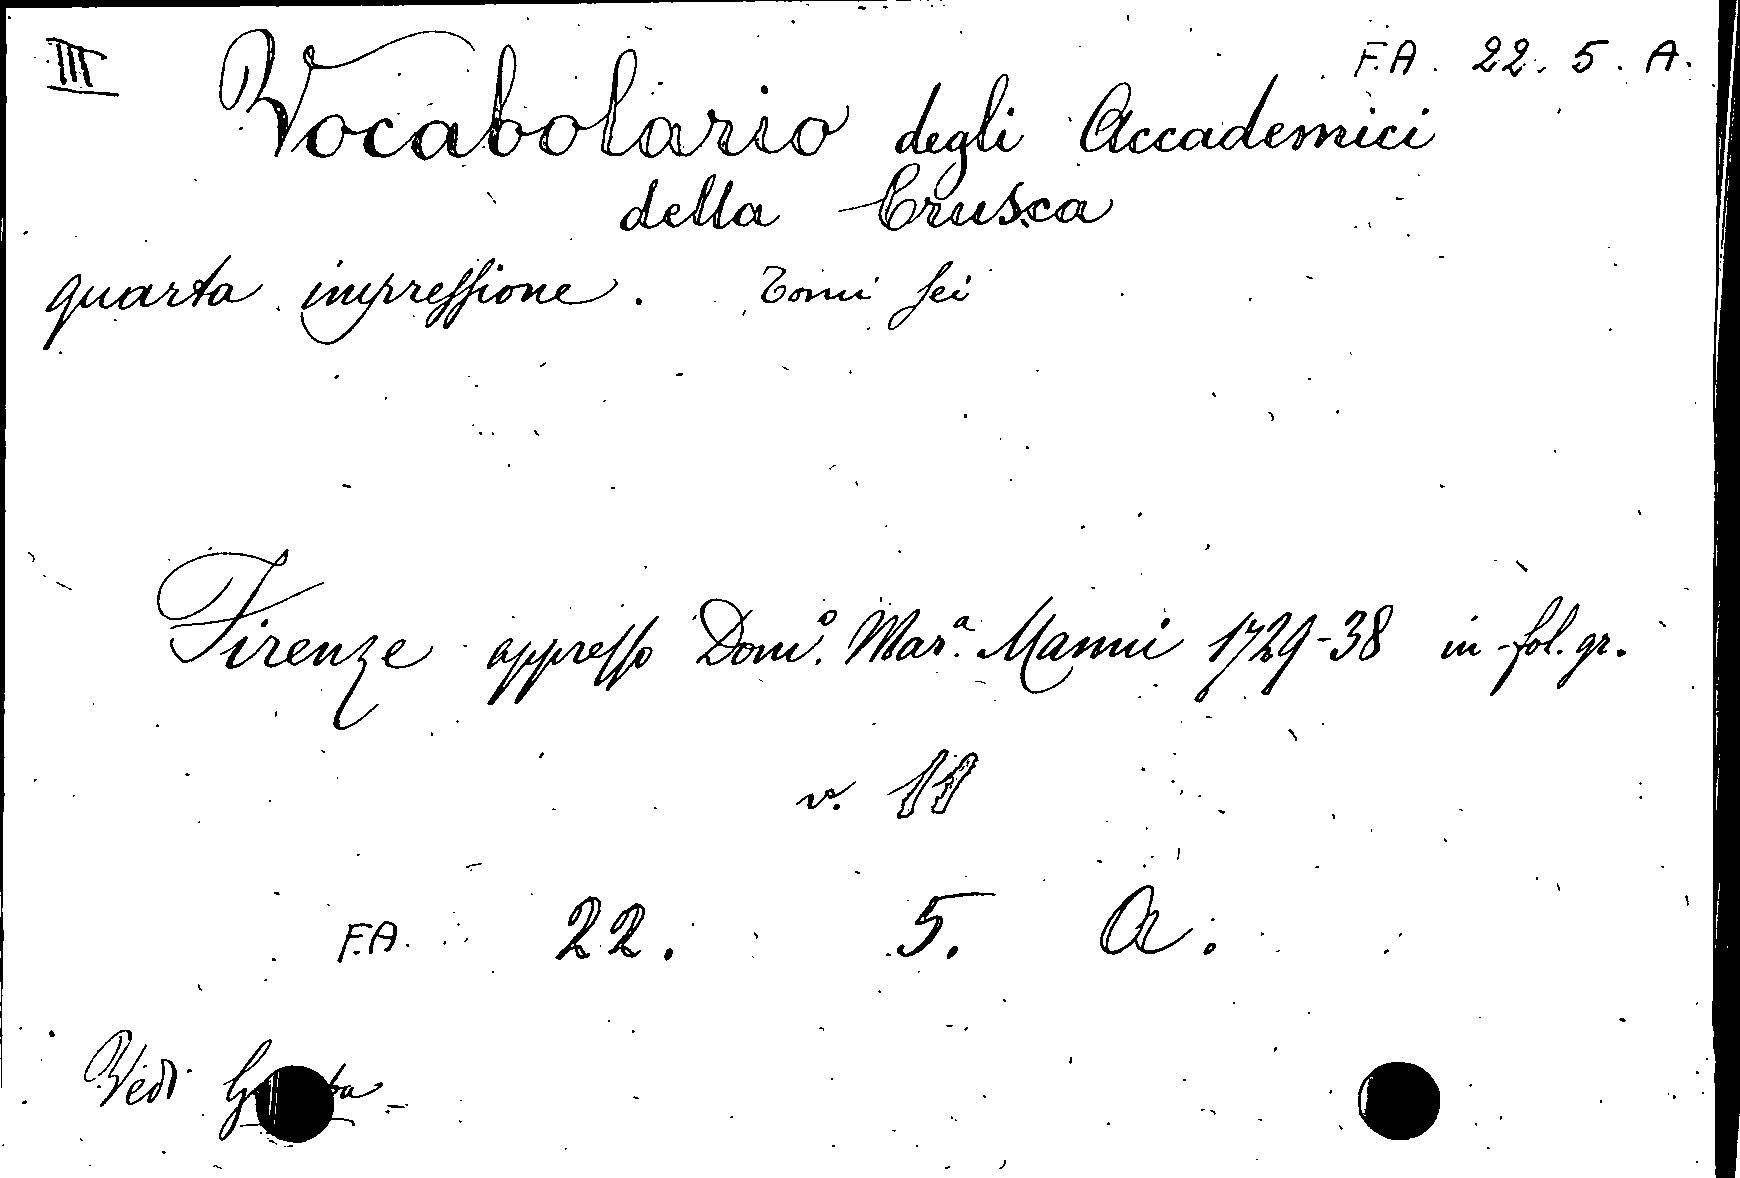 III F.A. 22. 5. A.
Vocabolario degli Accademici
della Crusca
quarta impressione. Tomi sei
Firenze appresso Dom.º Mar.ª Manni 1729-38 in-fol. gr.
v. 11
F.A. 22. 5. A.
Vedi